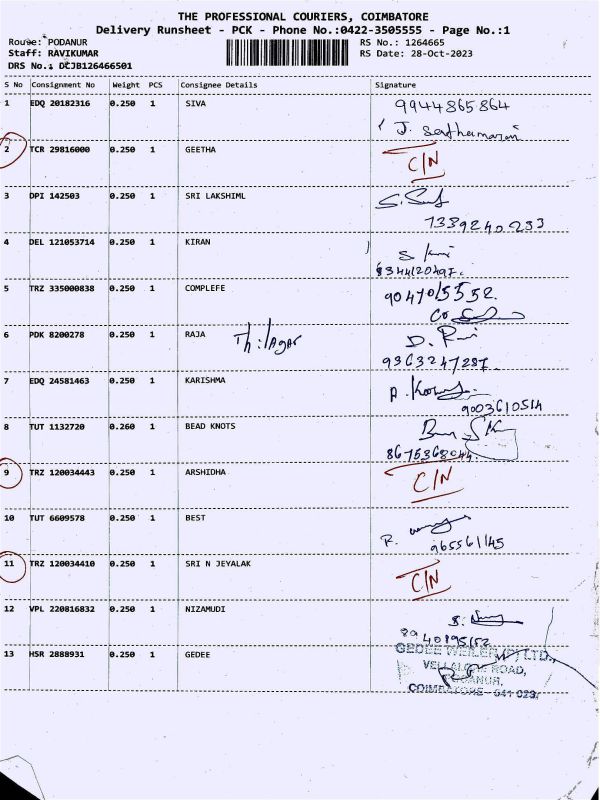 THE PROFESSIONAL COURIERS, COIMBATORE
Delivery Runsheet - PCK - Phone No.:0422-3505555 - Page No.:1
Route: PODANUR RS No.: 1264665
Staff: RAVIKUMAR RS Date: 28-Oct-2023
DRS No.: DCJB126466501
S No Consignment No Weight PCS Consignee Details Signature
1 EDQ 20182316 0.250 1 SIVA 9944865864
J.
2 TCR 29816000 0.250 1 GEETHA C/N
3 DPI 142503 0.250 1 SRI LAKSHIML
7339240233
4 DEL 121053714 0.250 1 KIRAN
8344120497.
5 TRZ 335000838 0.250 1 COMPLEFE 9047015552.
6 PDK 8200278 0.250 1 RAJA Thilagar D.
9363247287.
7 EDQ 24581463 0.250 1 KARISHMA
9003610514
8 TUT 1132720 0.260 1 BEAD KNOTS
8675368044.
9 TRZ 120034443 0.250 1 ARSHIDHA C/N
10 TUT 6609578 0.250 1 BEST R.
965561145
11 TRZ 120034410 0.250 1 SRI N JEYALAK C/N
12 VPL 220816832 0.250 1 NIZAMUDI
8940195152
13 HSR 2888931 0.250 1 GEDEE GEDEE WEILER (P) LTD.,
VELLALORE ROAD,
PODANUR,
COIMBATORE - 641 023.